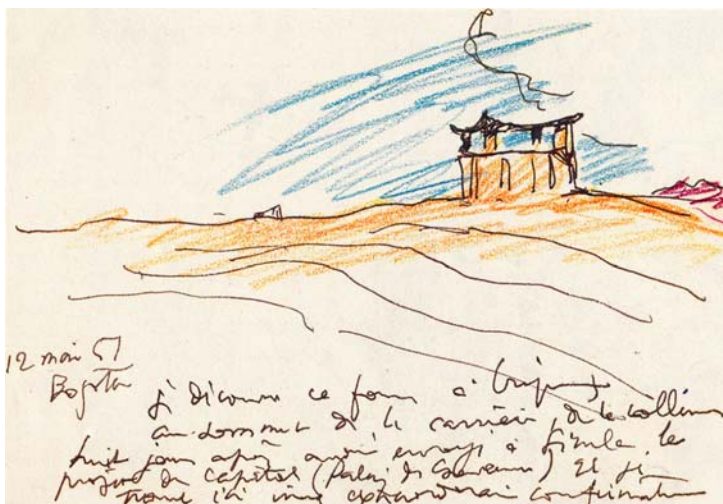 12 mai 51
Bogota
je découvre ce four à briques
au sommet de la carrière de la colline
huit jours après avoir envoyé à Simla le
projet du capitol (Palais du Gouverneur) Et je
trouve ici une extraordinaire confirmation